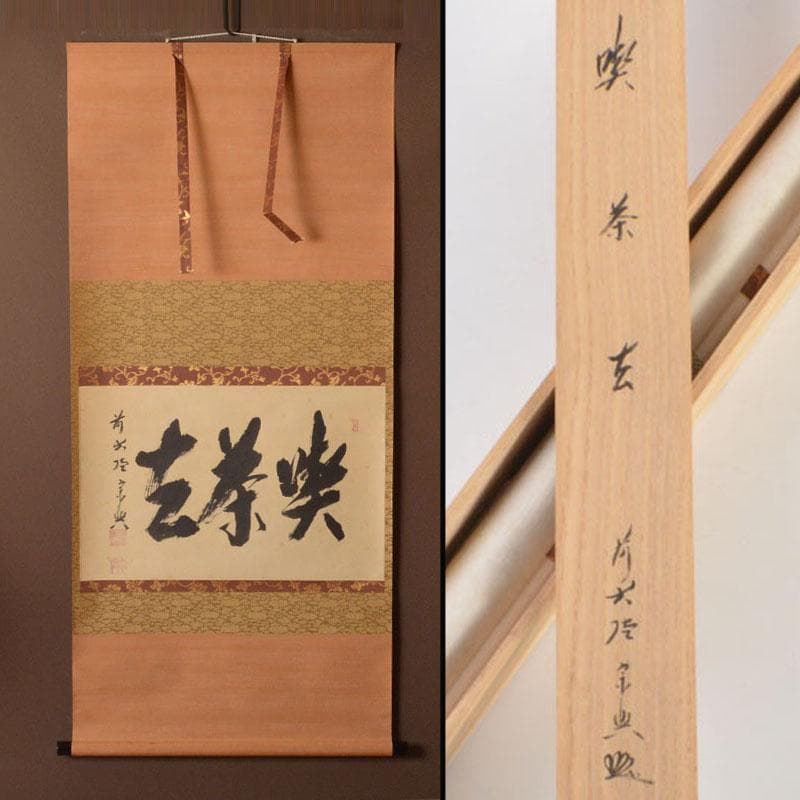 喫茶去
前大徳宗
喫茶去
前大徳宗